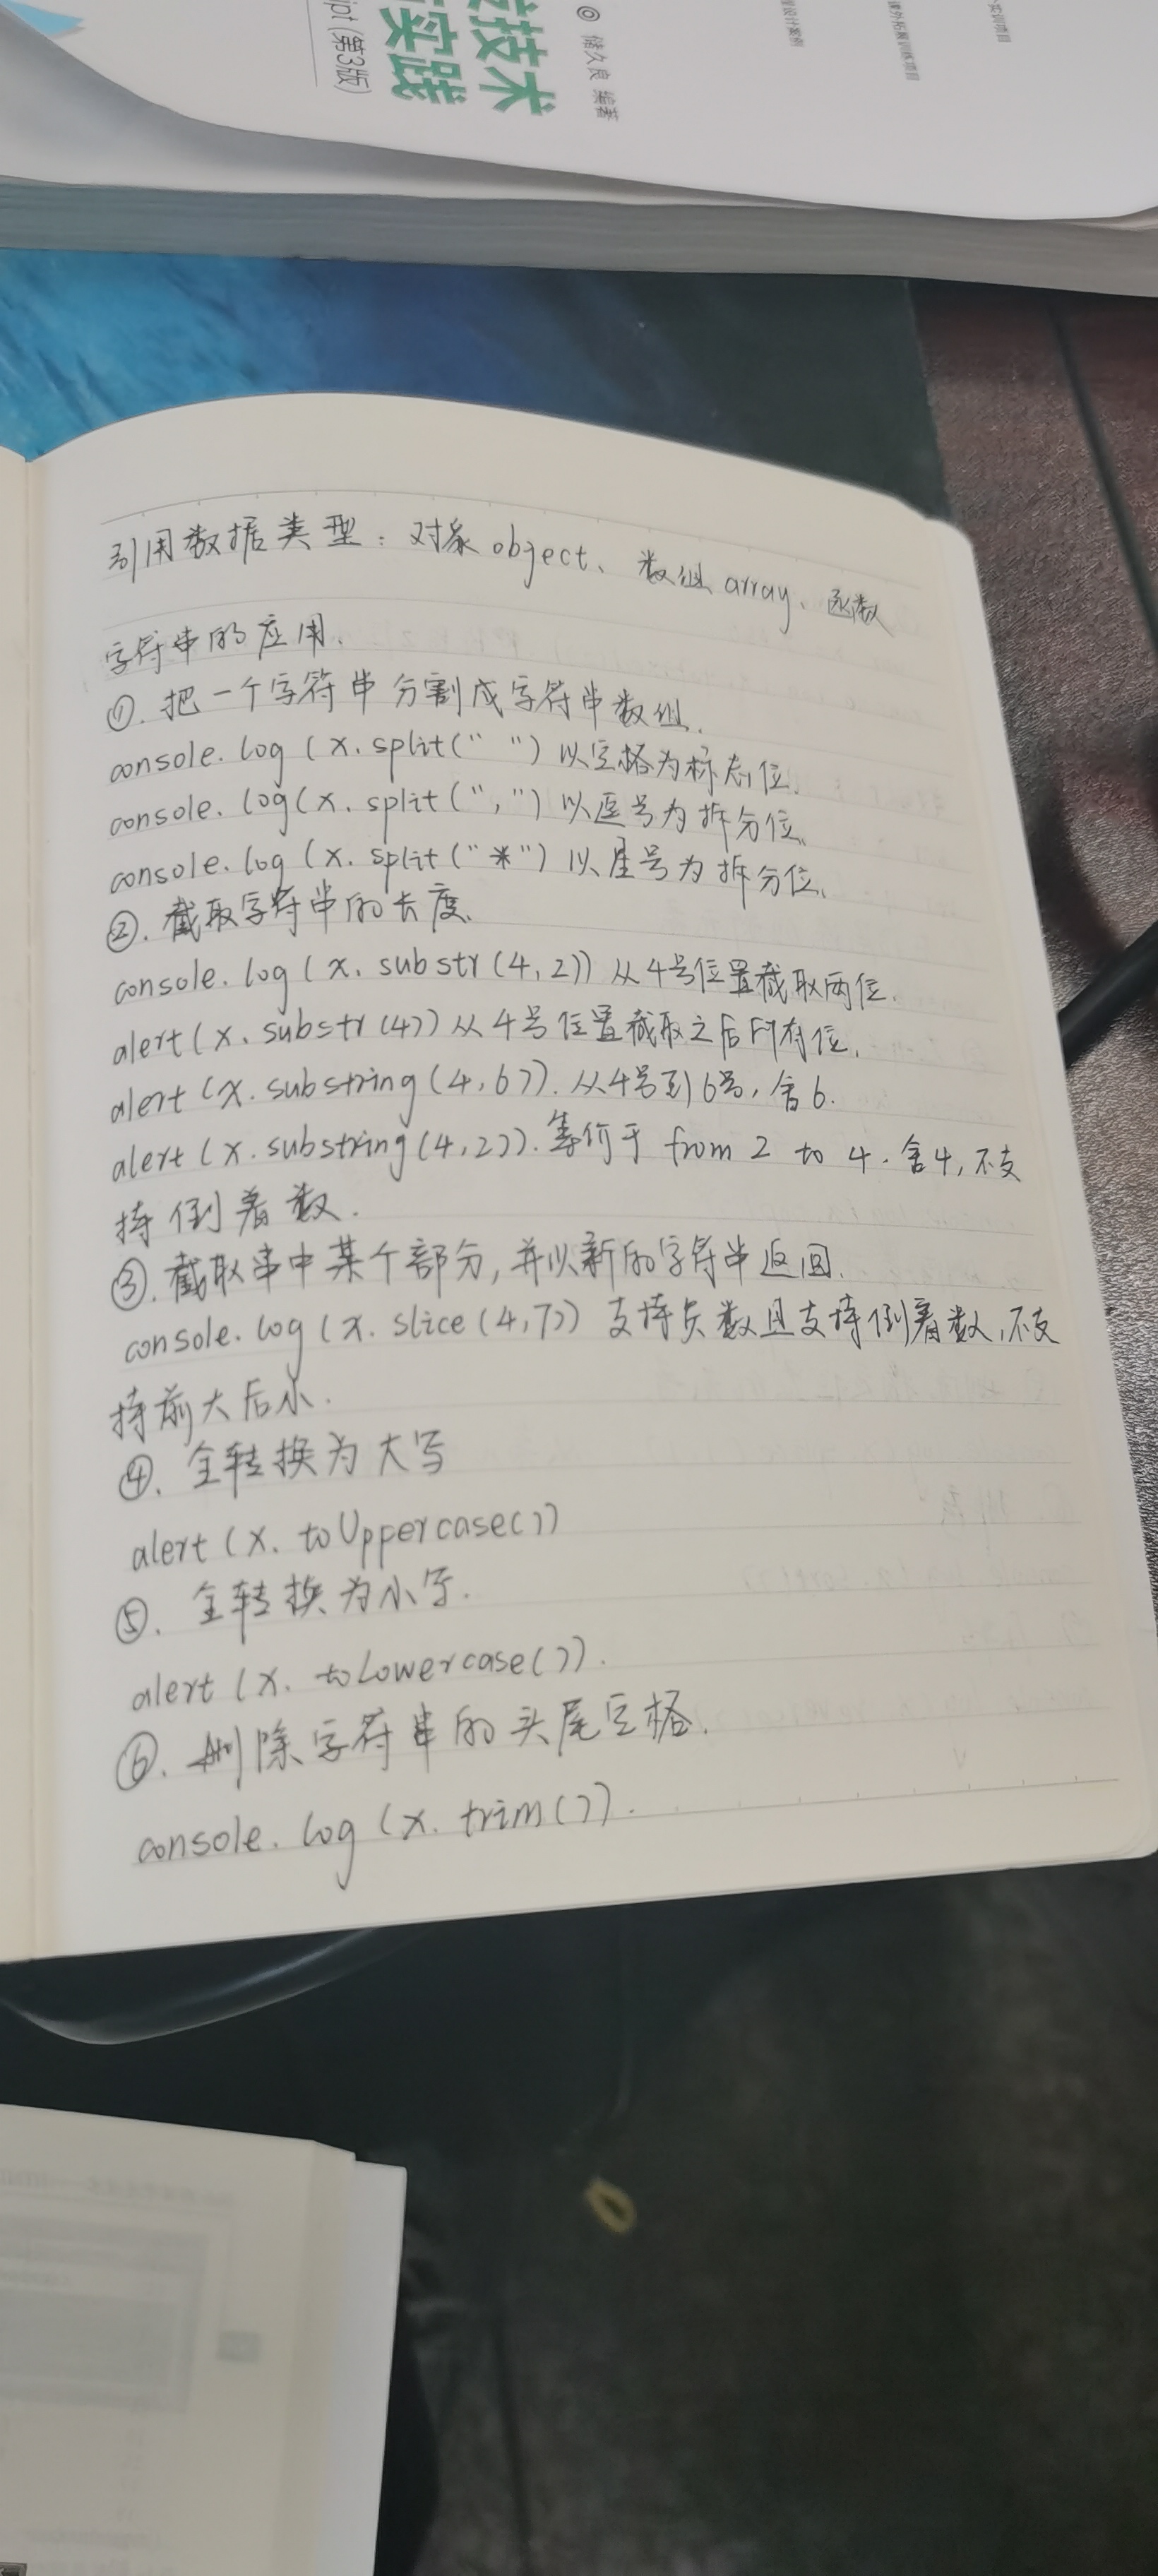 技术
实践
ipt (第3版)
◎ 储久良 编著
引用数据类型：对象object、数组array、函数
字符串的应用.
①. 把一个字符串分割成字符串数组.
console.log (x.split(" ") 以空格为标志位.
console.log(x.split(",") 以逗号为拆分位.
console.log (x.split("*") 以星号为拆分位.
②. 截取字符串的长度.
console.log (x.substr(4,2)) 从4号位置截取两位.
alert(x.substr(4)) 从4号位置截取之后所有位.
alert (x.substring(4,6)). 从4号到6号, 含6.
alert (x.substring(4,2)). 等价于 from 2 to 4. 含4, 不支
持倒着数.
③. 截取串中某个部分, 并以新的字符串返回.
console.log (x.slice(4,7)) 支持负数且支持倒着数, 不支
持前大后小.
④. 全转换为大写
alert (x.toUppercase())
⑤. 全转换为小写.
alert (x.toLowercase()).
⑥. 删除字符串的头尾空格.
console.log (x.trim()).